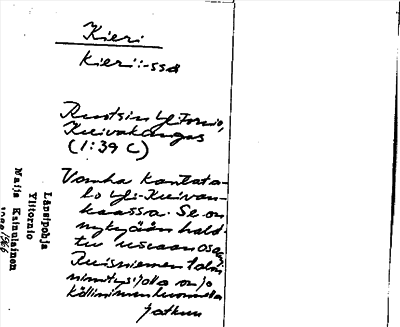 Kieri
Kieri:-ssä
Ruotsin Ylitornio,
Kuivakangas
(1:39 C)
Vanha kantata-
lo Yli-Kuivan-
kaassa. Se on
nykyään halot-
tu useaan osaan
Ruisniemen talon
nimitys: jolla on jo
Jatkuu
Länsipohja
Ylitornio
Maija Kainulainen